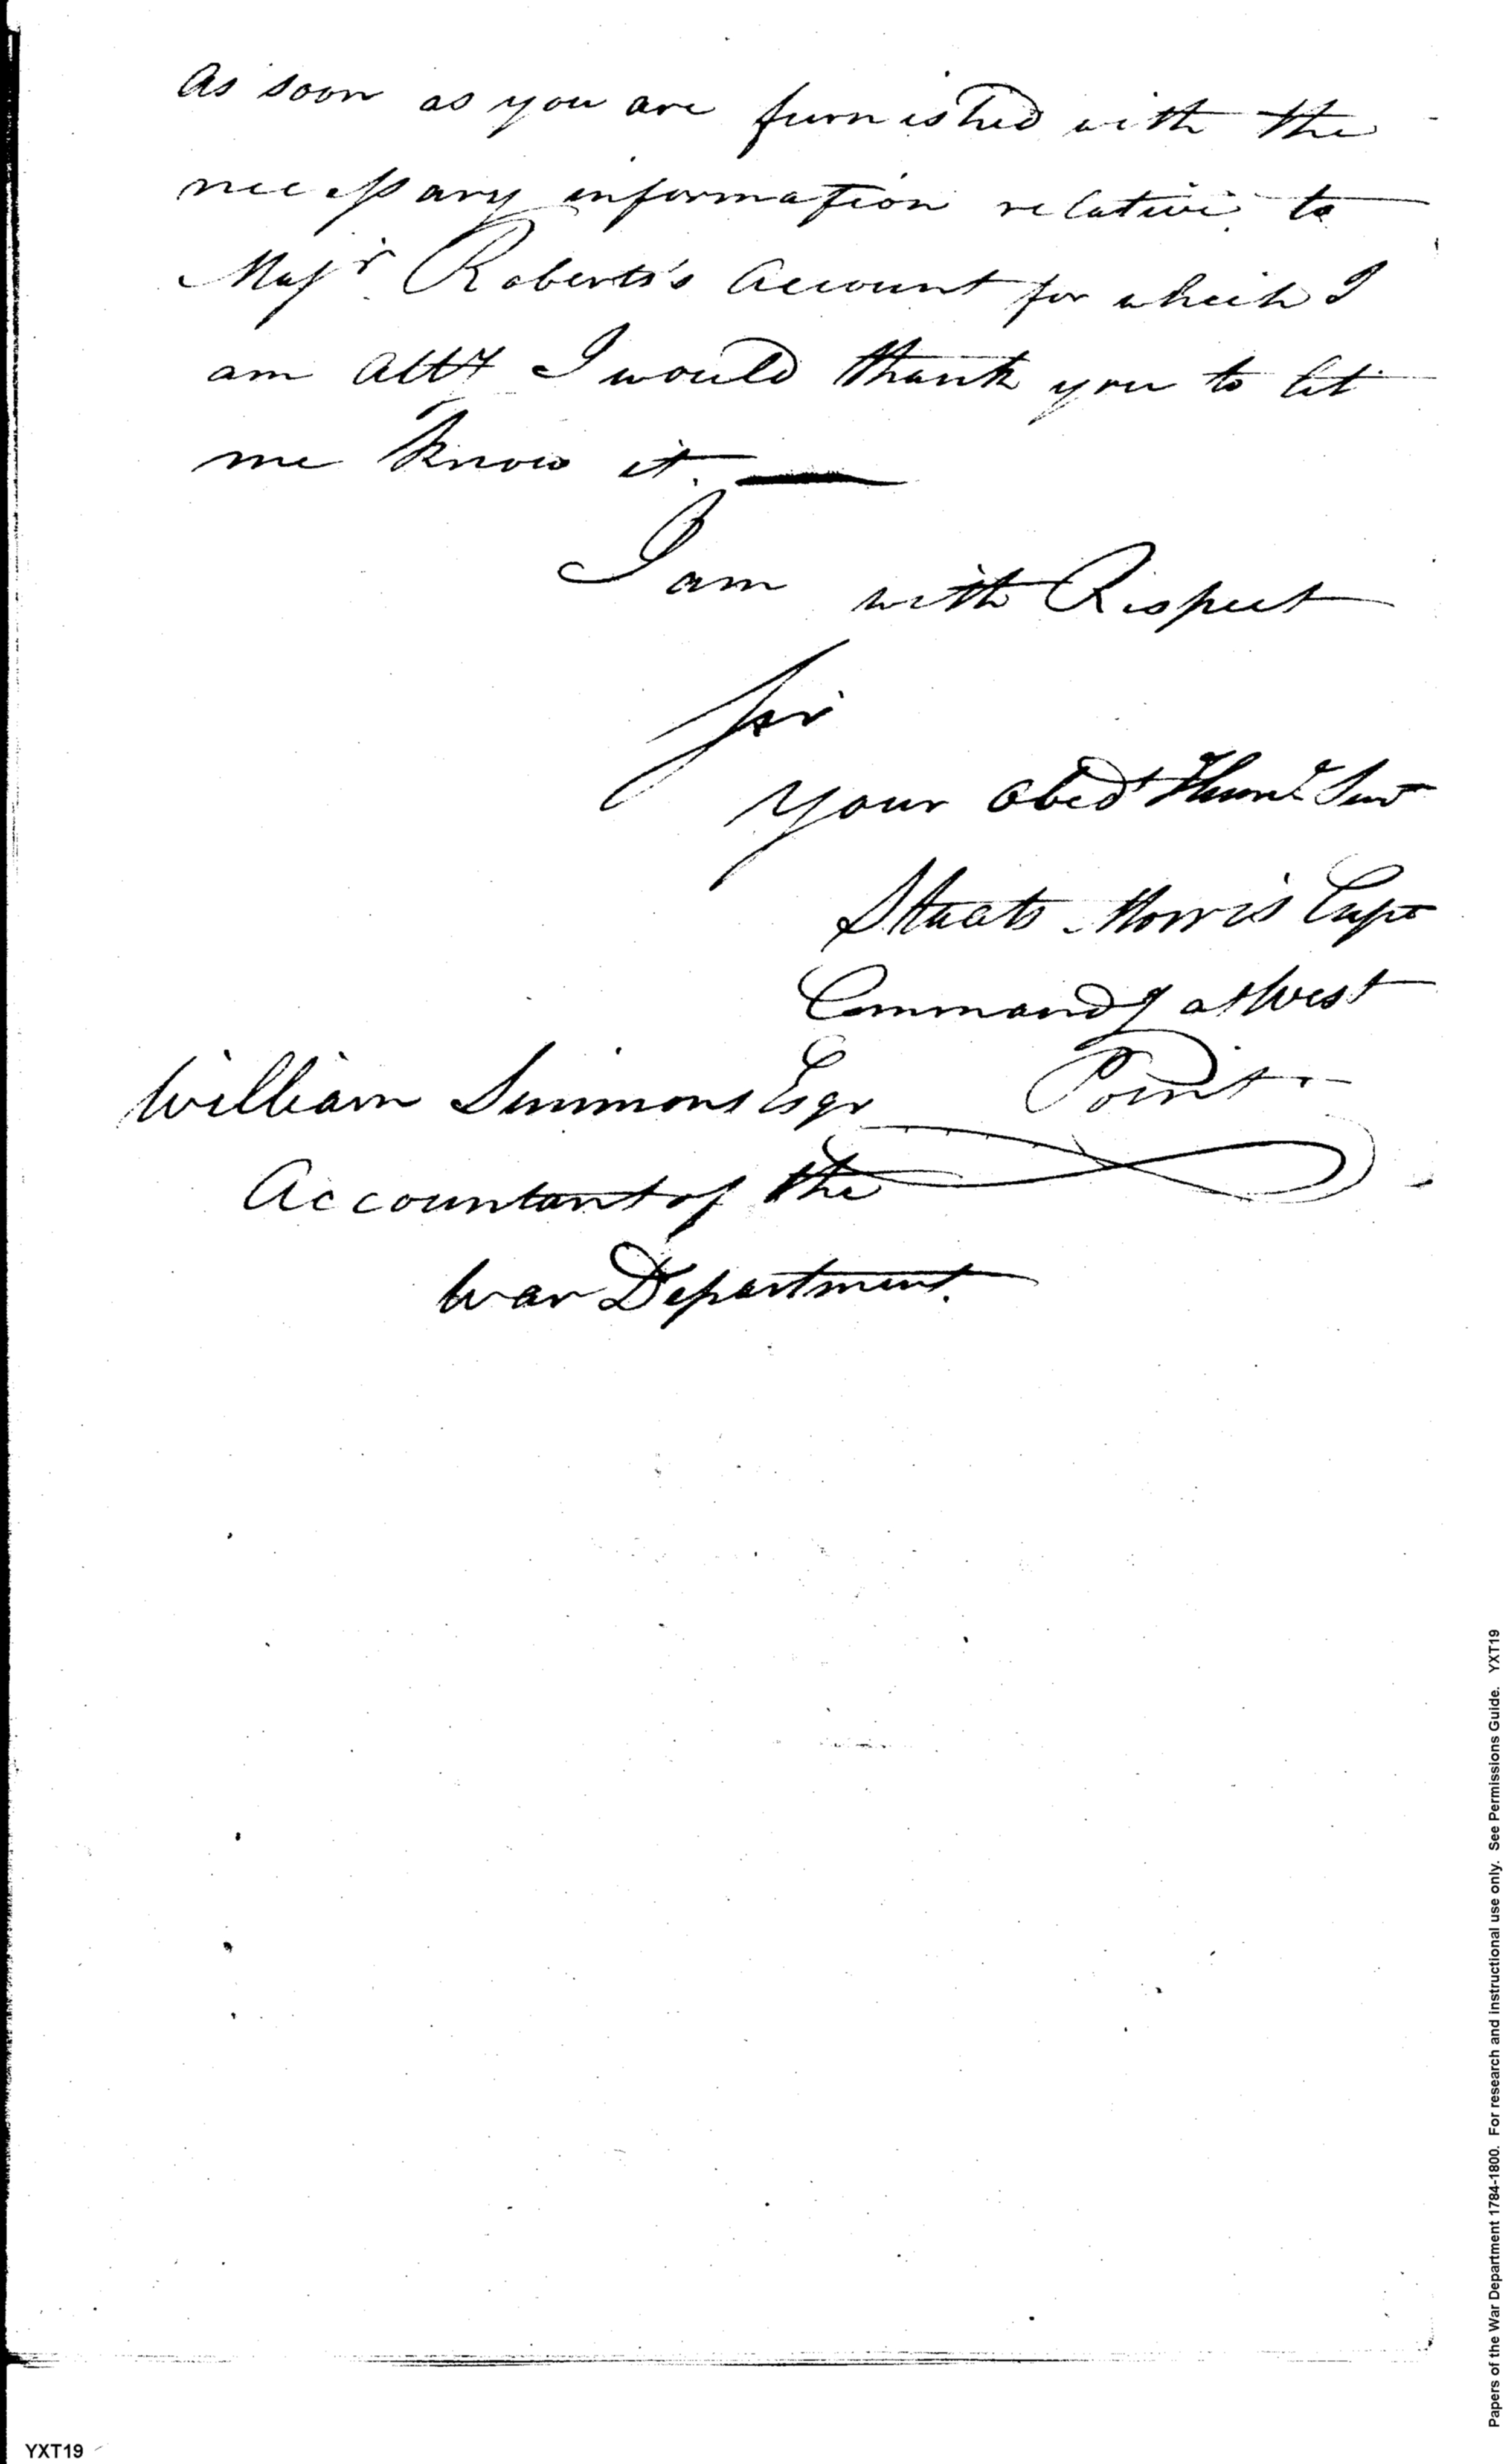 As soon as you are furnished with the
necessary information relative to
Majr Roberts's Account for which I
am Atty I would thank you to let
me know it.
I am with Respect
Sir
your obedt Humle Servt
Staats Morris Capt
Commandg at West
Point
William Simmons Esqr
Accountant of the
War Department.
Papers of the War Department 1784-1800. For research and instructional use only. See Permissions Guide. YXT19
YXT19